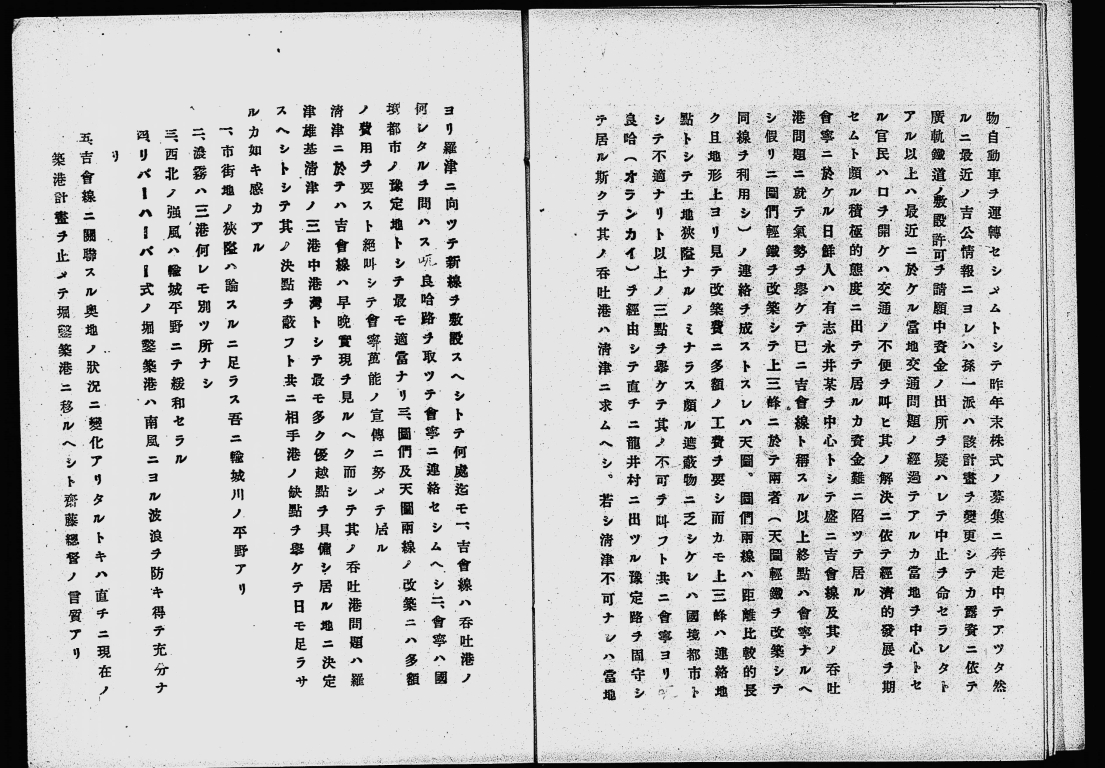 物自動車ヲ運轉セシメムトシテ昨年末株式ノ募集ニ奔走中テアツタ然
ルニ最近ノ吉公情報ニヨレハ孫一派ハ該計畫ヲ變更シテカ露資ニ依テ
廣軌鐵道ノ敷設許可ヲ請願中資金ノ出所ヲ疑ハレテ中止ヲ命セラレタト
アル以上ハ最近ニ於ケル當地交通問題ノ經過テアルカ當地ヲ中心トセ
ル官民ハ口ヲ開ケハ交通ノ不便ヲ叫ヒ其ノ解決ニ依テ經濟的發展ヲ期
セムト頗ル積極的態度ニ出テテ居ルカ資金難ニ陷ツテ居ル
會寧ニ於ケル日鮮人ハ有志永井某ヲ中心トシテ盛ニ吉會線及其ノ呑吐
港問題ニ就テ氣勢ヲ擧ケテ已ニ吉會線ト稱スル以上終點ハ會寧ナルヘ
シ假リニ圖們輕鐵ヲ改築シテ上三峰ニ於テ兩者（天圖輕鐵ヲ改築シテ
同線ヲ利用シ）ノ連絡ヲ成ストスレハ天圖、圖們兩線ハ距離比較的長
ク且地形上ヨリ見テ改築費ニ多額ノ工費ヲ要シ而カモ上三峰ハ連絡地
點トシテ土地狹隘ナルノミナラス頗ル遮蔽物ニ乏シケレハ國境都市ト
シテ不適ナリト以上ノ三點ヲ擧ケテ其ノ不可ヲ叫フト共ニ會寧ヨリ
良哈（オランカイ）ヲ經由シテ直チニ龍井村ニ出ツル豫定路ヲ固守シ
テ居ル斯クテ其ノ呑吐港ハ淸津ニ求ムヘシ。若シ淸津不可ナレハ當地
ヨリ羅津ニ向ツテ新線ヲ敷設スヘシトテ何處迄モ一、吉會線ハ呑吐港ノ
何レタルヲ問ハス良哈路ヲ取ツテ會寧ニ連絡セシムヘシ二、會寧ハ國
境都市ノ豫定地トシテ最モ適當ナリ三、圖們及天圖兩線ノ改築ニハ多額
ノ費用ヲ要スト絕叫シテ會寧萬能ノ宣傳ニ努メテ居ル
淸津ニ於テハ吉會線ハ早晚實現ヲ見ルヘク而シテ其ノ呑吐港問題ハ羅
津雄基淸津ノ三港中港灣トシテ最モ多ク優越點ヲ具備シ居ル地ニ決定
スヘシトシテ其ノ決點ヲ蔽フト共ニ相手港ノ缺點ヲ擧ケテ日モ足ラサ
ルカ如キ感カアル
一、市街地ノ狹隘ハ論スルニ足ラス吾ニ輸城川ノ平野アリ
二、濃霧ハ三港何レモ別ツ所ナシ
三、西北ノ强風ハ輸城平野ニテ緩和セラル
四、リバーハーバー式ノ堀鑿築港ハ南風ニヨル波浪ヲ防キ得テ充分ナ
リ
五、吉會線ニ關聯スル奧地ノ狀況ニ變化アリタルトキハ直チニ現在ノ
築港計畫ヲ止メテ堀鑿築港ニ移ルヘシト齋藤總督ノ言質アリ